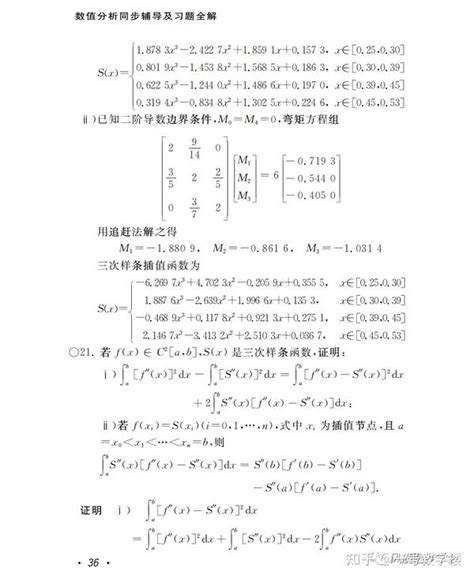 数值分析同步辅导及习题全解
S(x)={ 1.878 3x³−2.422 7x²+1.859 1x+0.157 3, x∈[0.25,0.30]
0.801 9x³−1.453 8x²+1.568 5x+0.186 3, x∈[0.30,0.39]
0.622 5x³−1.244 0x²+1.486 6x+0.197 0, x∈[0.39,0.45]
0.319 4x³−0.834 8x²+1.302 5x+0.224 6, x∈[0.45,0.53]
ⅱ)已知二阶导数边界条件,M₀=M₄=0,弯矩方程组
[2 9/14 0] [M₁] [−0.719 3]
[3/5 2 2/5] [M₂] = 6 [−0.544 0]
[0 3/7 2] [M₃] [−0.405 0]
用追赶法解之得
M₁=−1.880 9, M₂=−0.861 6, M₃=−1.031 4
三次样条插值函数为
S(x)={ −6.269 7x³+4.702 3x²−0.205 9x+0.355 5, x∈[0.25,0.30]
1.887 6x³−2.639x²+1.996 6x+0.135 3, x∈[0.30,0.39]
−0.468 9x³+0.117 8x²+0.921 3x+0.275 1, x∈[0.39,0.45]
2.146 7x³−3.413 2x²+2.510 3x+0.036 7, x∈[0.45,0.53]
○21. 若 f(x)∈C²[a,b],S(x)是三次样条函数,证明:
ⅰ)∫ₐᵇ[f″(x)]²dx−∫ₐᵇ[S″(x)]²dx=∫ₐᵇ[f″(x)−S″(x)]²dx
+2∫ₐᵇS″(x)[f″(x)−S″(x)]dx;
ⅱ)若 f(xᵢ)=S(xᵢ)(i=0,1,⋯,n),式中 xᵢ 为插值节点,且 a
=x₀<x₁<⋯<xₙ=b,则
∫ₐᵇS″(x)[f″(x)−S″(x)]dx=S″(b)[f′(b)−S′(b)]
−S″(a)[f′(a)−S′(a)].
证明 ⅰ) ∫ₐᵇ[f″(x)−S″(x)]²dx
=∫ₐᵇ[f″(x)]²dx+∫ₐᵇ[S″(x)]²dx−2∫ₐᵇf″(x)S″(x)dx
· 36 ·
知乎